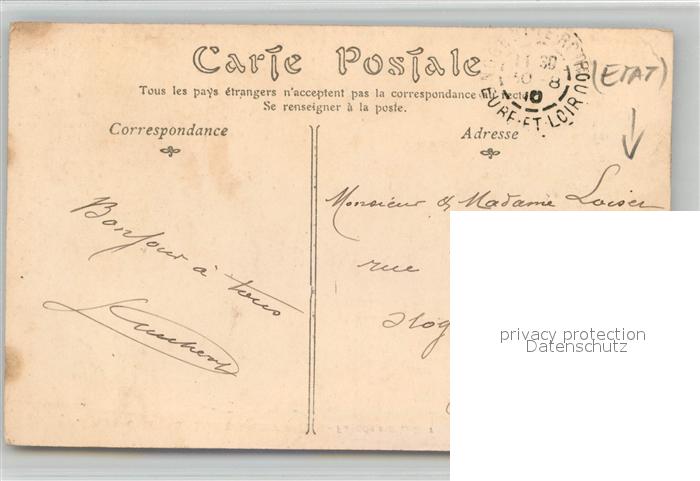 Carte Postale
Tous les pays étrangers n'acceptent pas la correspondance au recto
Se renseigner à la poste.
(ETAT)
11 30
30 - 8
10
EURE-ET-LOIR
Correspondance
Adresse
Monsieur & Madame Loiser
rue
Nog
Bonjour à tous
privacy protection
Datenschutz